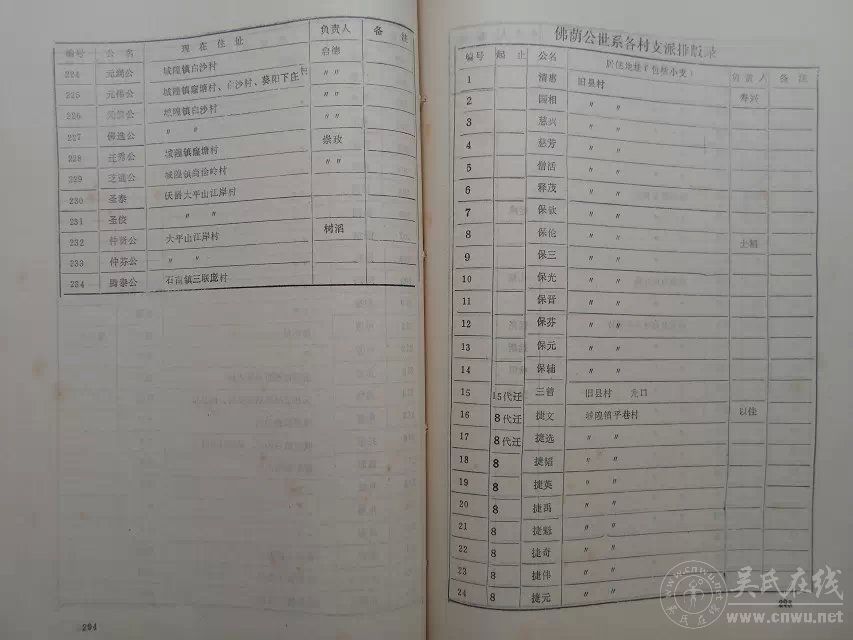 编号 公名 现在住址 负责人 备注
224 元润公 城隍镇白沙村 启德
225 元伟公 城隍镇窿塘村、白沙村、葵阳下庄村 〃 〃
226 城隍镇白沙村 〃 〃
227 佛逸公 〃 〃
228 城隍镇窿塘村 崇政
229 芝适公 城隍镇高岭村 〃 〃
230 圣泰 大平山江岸村
231 圣俊 〃 〃
232 仲贤公 大平山江岸村 树滔
233 仲芬公 〃 〃
234 腾泰公 石南镇三联庞村
294
佛荫公世系各村支派排版录
编号 起止 公名 居住地址(包括小支) 负责人 备注
1 清惠 旧县村
2 国相 〃 〃 寿兴
3 慈兴 〃 〃
4 慈芳 〃 〃
5 僧活 〃 〃
6 释茂 〃 〃
7 保钦 〃 〃
8 保伦 〃 〃
9 保三 〃 〃
10 保光 〃 〃
11 保晋 〃 〃
12 保芬 〃 〃
13 保元 〃 〃
14 保辅 〃 〃
15 15代迁 三曾 旧县村
16 8代迁 捷文 城隍镇平巷村 以佳
17 8代迁 捷选 〃 〃
18 8 捷韬 〃 〃
19 8 捷英 〃 〃
20 8 捷禹 〃 〃
21 8 捷魁 〃 〃
22 8 捷奇 〃 〃
23 8 捷伟 〃 〃
24 8 捷元 〃 〃
吴氏在线
www.cnwu.net